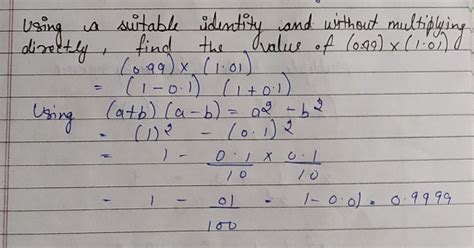 Using a suitable identity and without multiplying
directly, find the value of (0.99) × (1.01)
(0.99) × (1.01)
= (1 - 0.1) (1 + 0.1)
Using (a+b) (a-b) = a² - b²
= (1)² - (0.1)²
= 1 - 0.1/10 × 0.1/10
= 1 - 01/100 = 1 - 0.01 = 0.9999